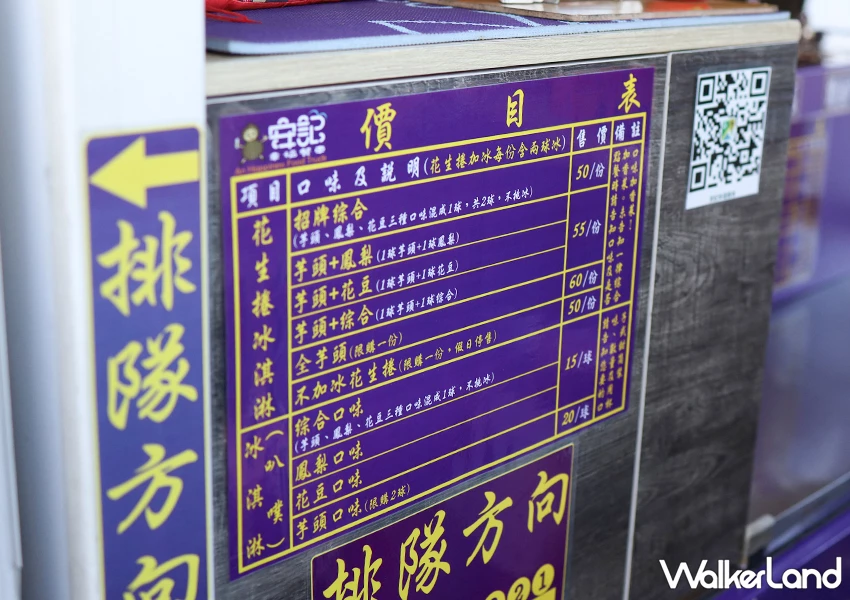 安記
價目表
項目
口味及說明(花生捲加冰每份含兩球冰)
售價
備註
花生捲冰淇淋
招牌綜合
(芋頭、鳳梨、花豆三種口味混成1球,共2球,不挑冰)
50/份
芋頭+鳳梨(1球芋頭+1球鳳梨)
芋頭+花豆(1球芋頭+1球花豆)
芋頭+綜合(1球芋頭+1球綜合)
55/份
全芋頭(限購一份)
60/份
不加冰花生捲(限購一份,假日停售)
50/份
冰淇淋(叭噗)
綜合口味
(芋頭、鳳梨、花豆三種口味混成1球,不挑冰)
鳳梨口味
花豆口味
15/球
芋頭口味(限購2球)
20/球
排隊方向
排隊方向
2 1
WALKERLAND